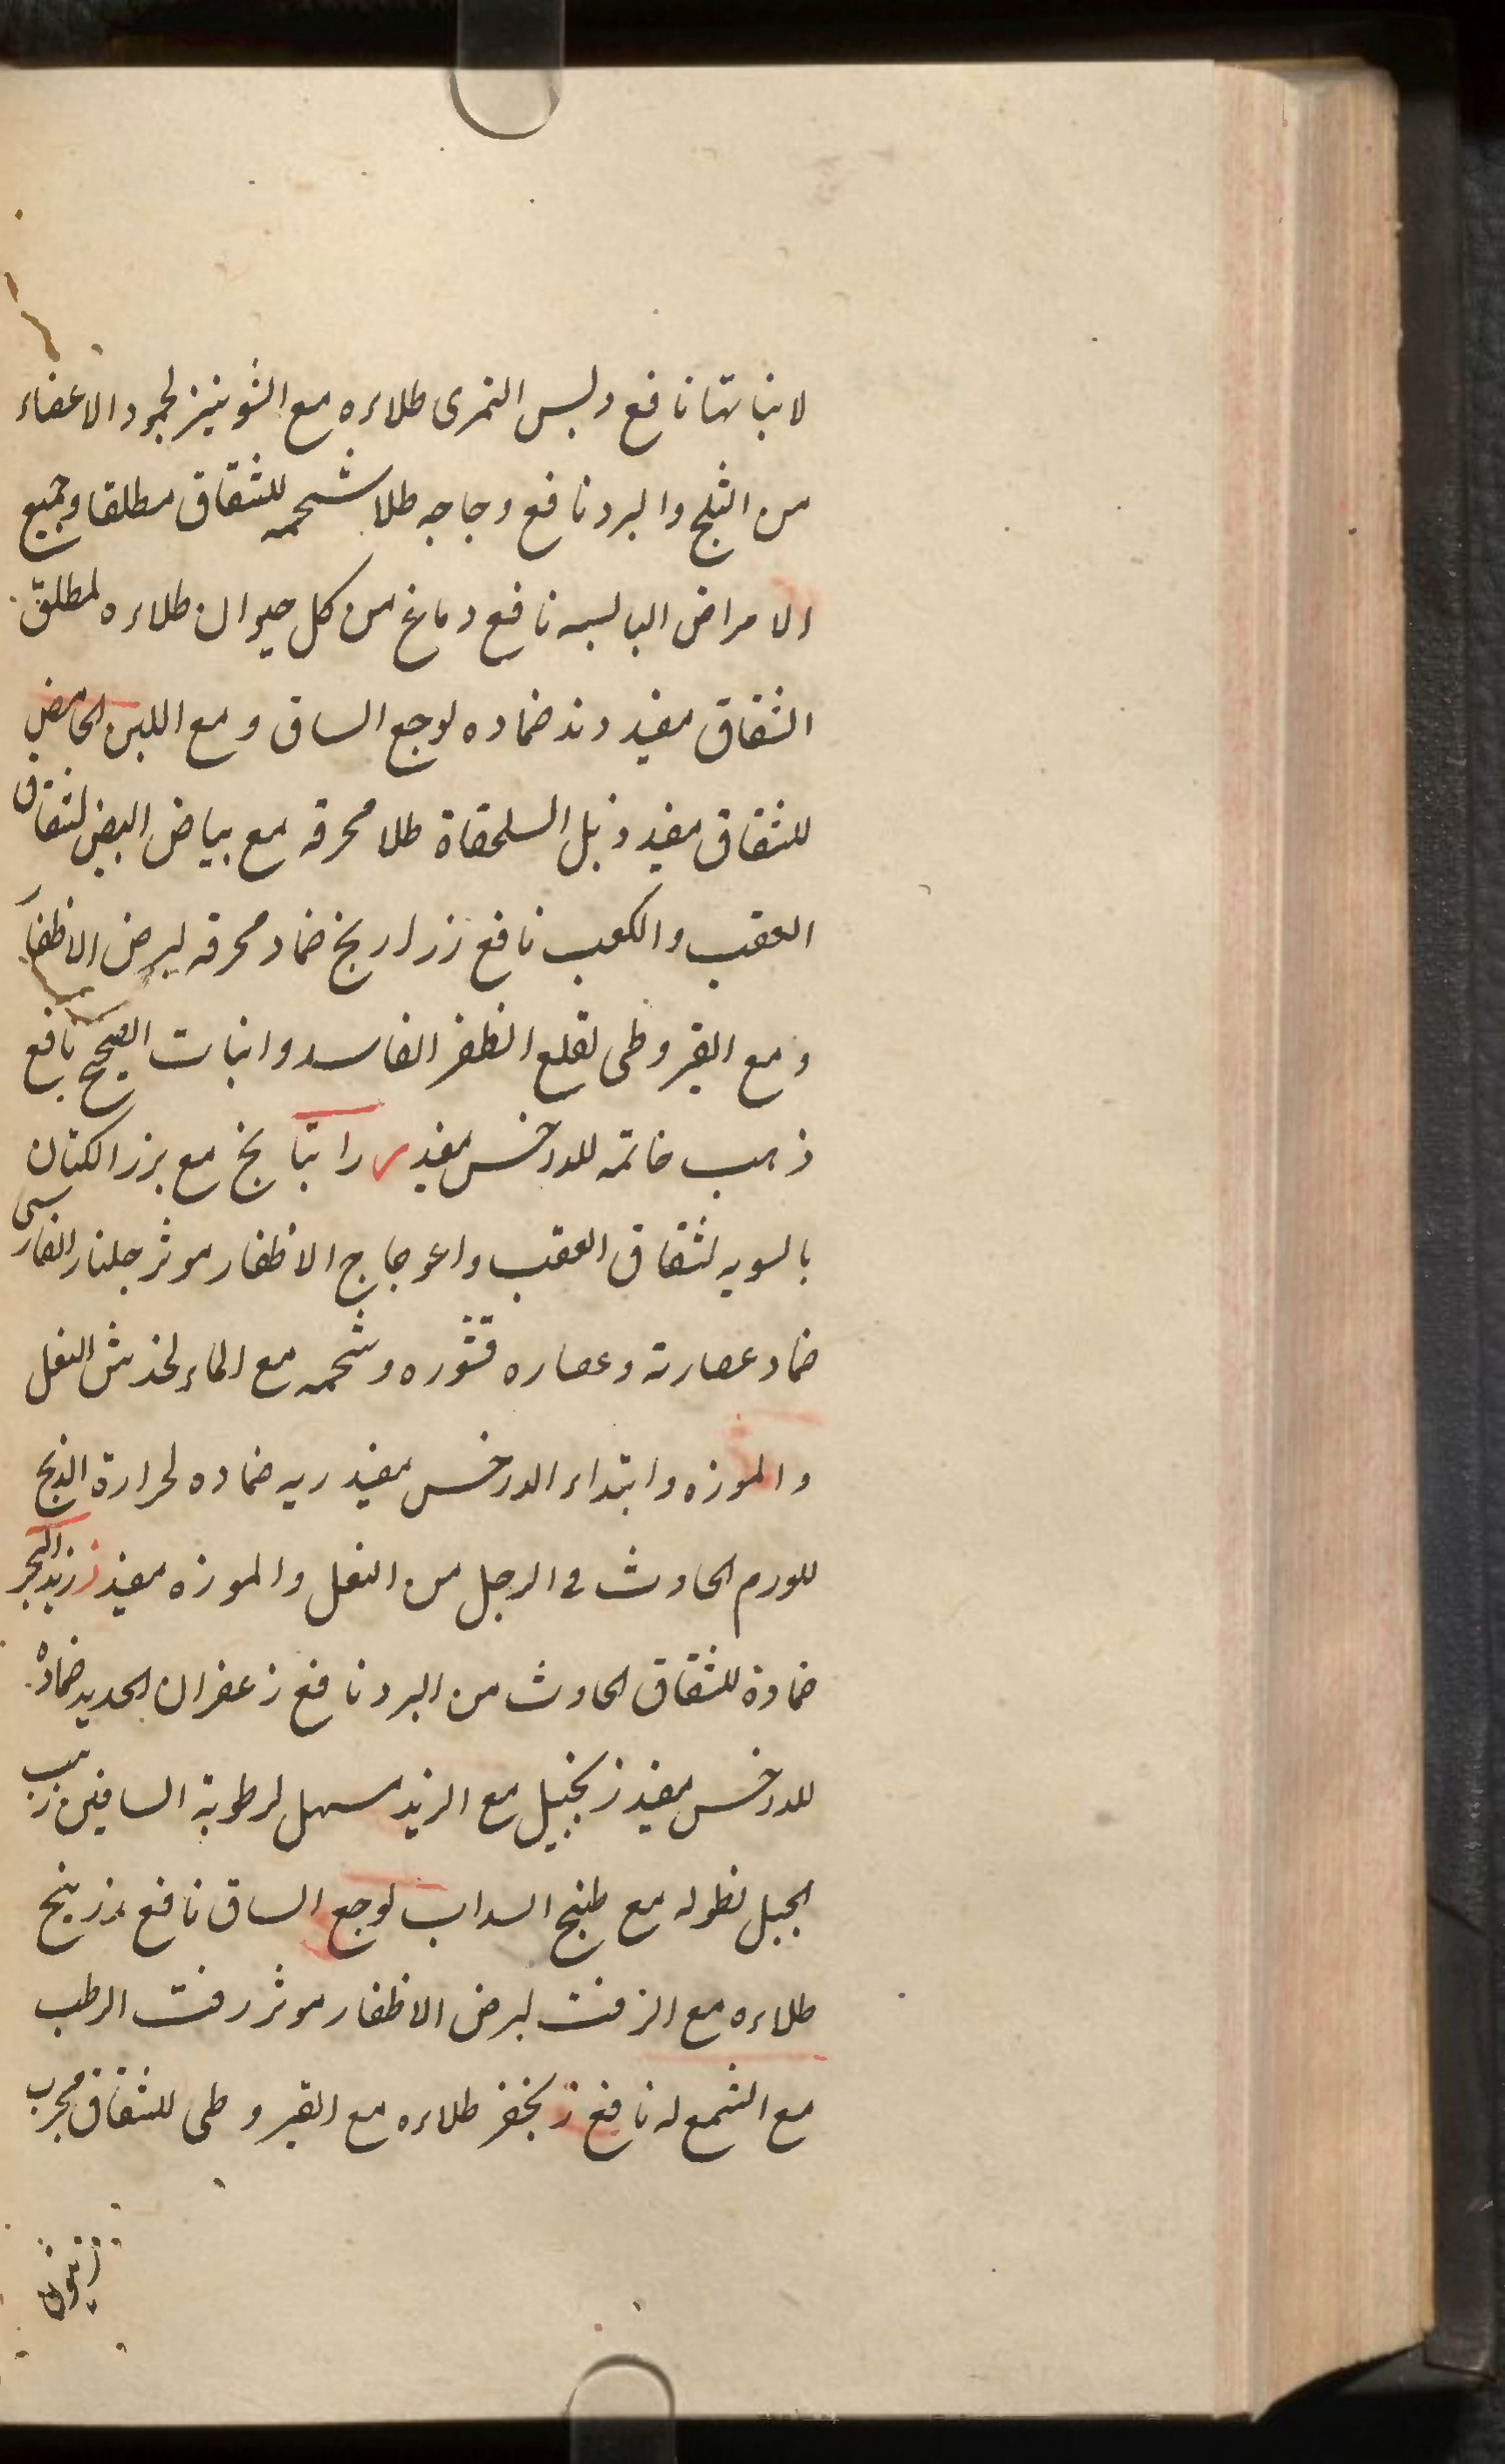 لانباتها نافع دبس التمرى طلاءه مع الشونيز لجمود الاعضاء
من الثلج والبرد نافع دجاجه طلا شحمه للشقاق مطلقا وجميع
الامراض اليابسه نافع دماغ من كل حيوان طلاءه لمطلق
الشقاق مفيد دند ضماده لوجع الساق و مع اللبن الحامض
للشقاق مفيد ذبل السلحفاة طلا محرقه مع بياض البيض لشقاق
العقب والكعب نافع ذراريخ ضماد محرقه لبرص الاظفار
و مع القيروطى لقلع الظفر الفاسد وانبات الصحيح نافع
ذهب خاتمه للدخس مفيد ر راتيانج مع بزر الكتان
بالسويه لشقاق العقب واعوجاج الاظفار موثر جلنار الفارسى
ضماد عصارته وعصاره قشوره وشحمه مع الماء لخدش النعل
والموزه وابتداء الدرخس مفيد ريه ضماده لحرارة الذبح
للورم الحادث فى الرجل من النعل والموزه مفيد ز زبد البحر
ضماده للشقاق الحادث من البرد نافع زعفران الحديد ضماده
للدرخس مفيد زنجبيل مع الزيد مسهل لرطوبة الساقين زبيب
الجبل نطوله مع طبخ السداب لوجع الساق نافع زرنيخ
طلاءه مع الزفت لبرص الاظفار موثر زفت الرطب
مع الشمع له نافع زنجفر طلاءه مع القيروطى للشقاق مجرب
زيتون